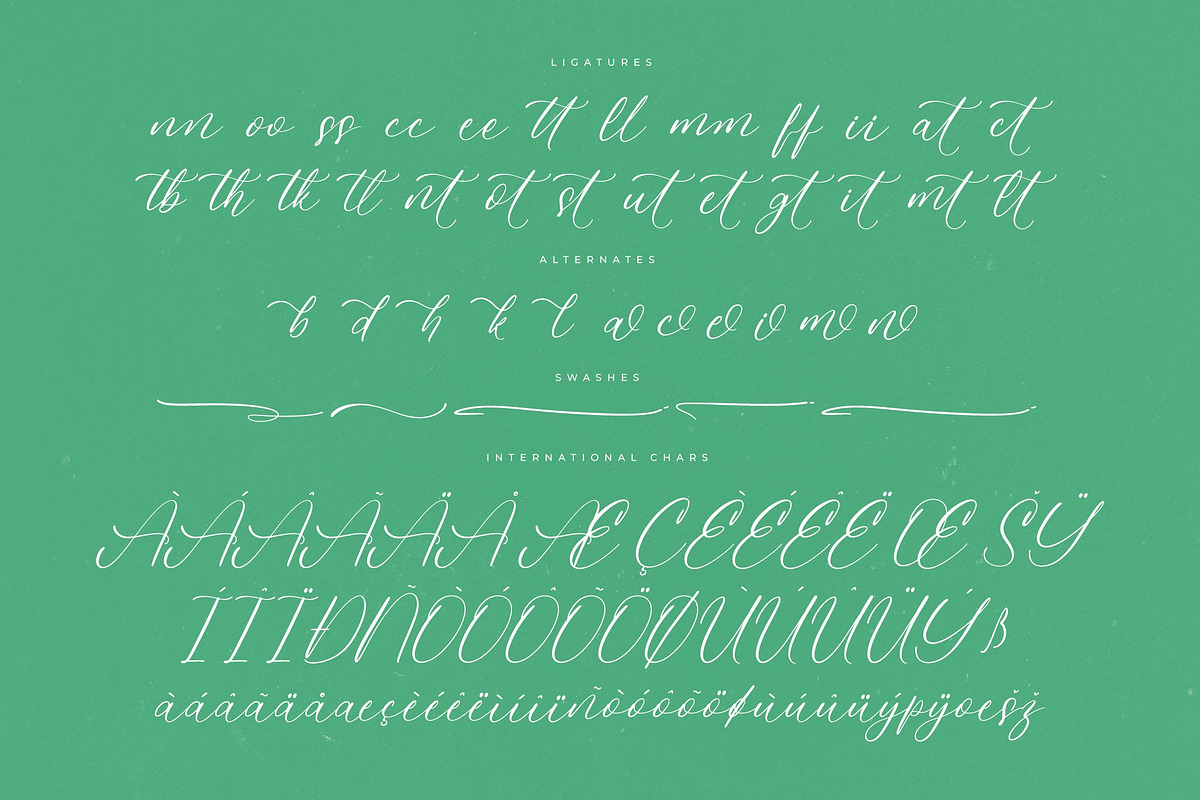 LIGATURES
nn oo ss cc ee tt ll mm ff ii at ct
tb th tk tl nt ot st ut et gt it mt lt
ALTERNATES
b d h k l a c e i m n
SWASHES
INTERNATIONAL CHARS
ÀÁÂÃÄÅ Æ ÇÈÉÊË Œ ŠŸ
ÍÎÏÐÑÒÓÔÕÖØÙÚÛÜÝß
àáâãäåæçèéêëìíîïñòóôõöøùúûüýþÿœšž